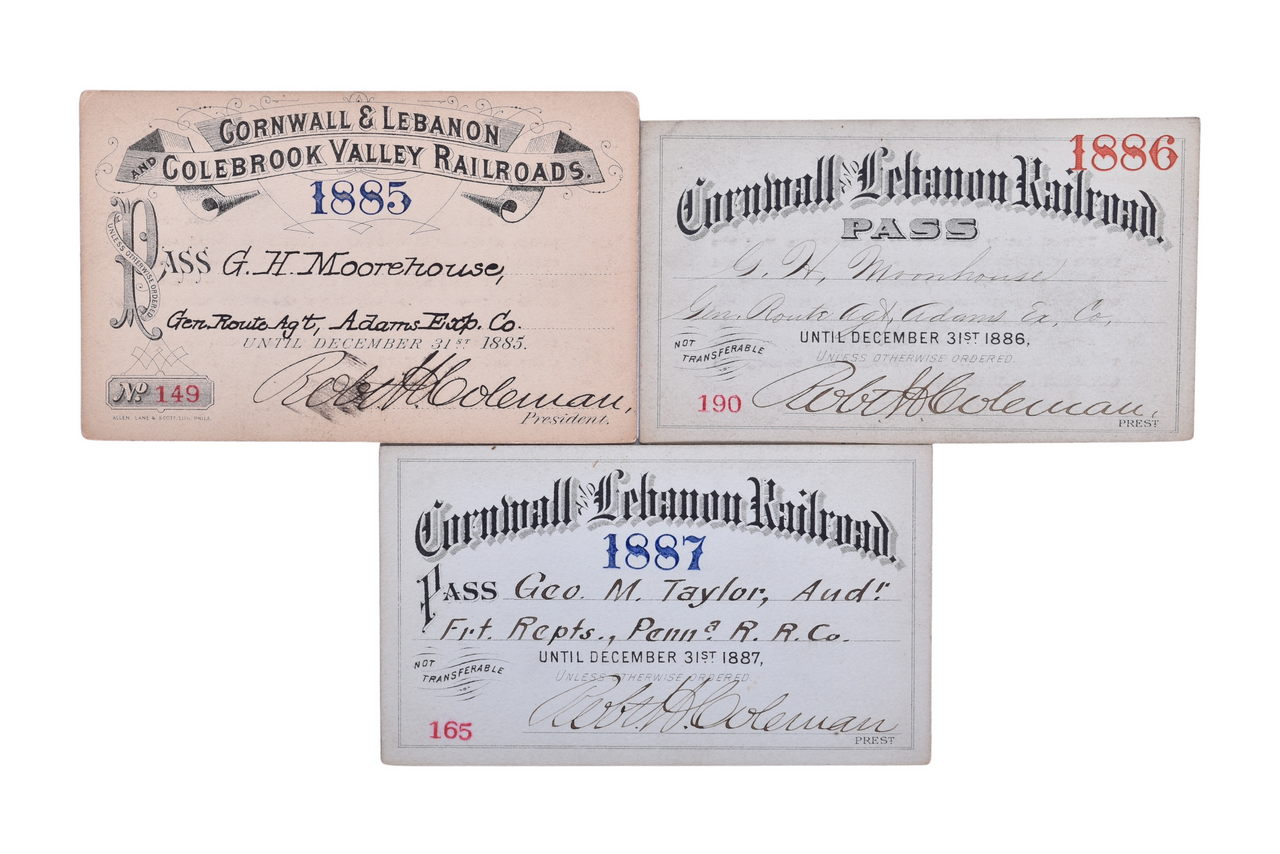 CORNWALL & LEBANON
AND COLEBROOK VALLEY RAILROADS.
1885
PASS G. H. Moorehouse,
UNLESS OTHERWISE ORDERED
Gen. Route Agt, Adams Exp. Co.
UNTIL DECEMBER 31ST 1885.
Robt H Coleman,
President.
No 149
ALLEN, LANE & SCOTT, LITH. PHILA.
1886
Cornwall AND Lebanon Railroad.
PASS
G. H. Moorehouse
Gen. Route Agt, Adams Ex. Co.
UNTIL DECEMBER 31ST 1886,
NOT TRANSFERABLE
UNLESS OTHERWISE ORDERED.
190
Robt H Coleman,
PREST
Cornwall AND Lebanon Railroad.
1887
PASS Geo. M. Taylor, Audr.
Frt. Repts., Penna. R. R. Co.
UNTIL DECEMBER 31ST 1887,
NOT TRANSFERABLE
UNLESS OTHERWISE ORDERED
Robt. H. Coleman
165
PREST